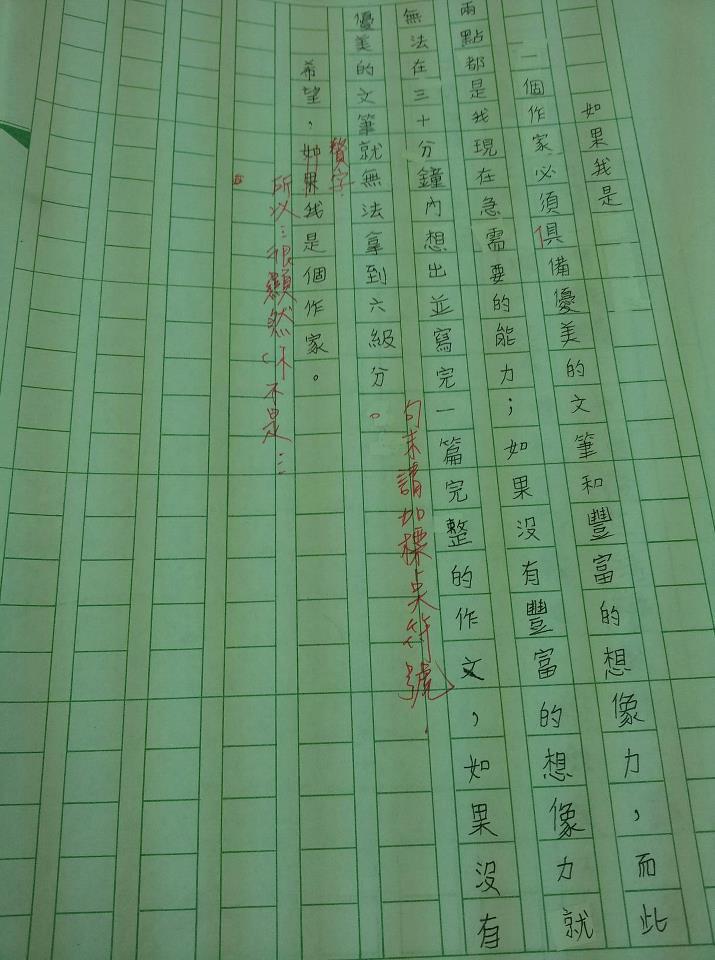 如果我是
一個作家必須俱備優美的文筆和豐富的想像力，而此
兩點都是我現在急需要的能力；如果沒有豐富的想像力就
無法在三十分鐘內想出並寫完一篇完整的作文，如果沒有
句末請加標点符號.
優美的文筆就無法拿到六級分。
贅字.
希望，如果我是個作家。
所以…很顯然不是…